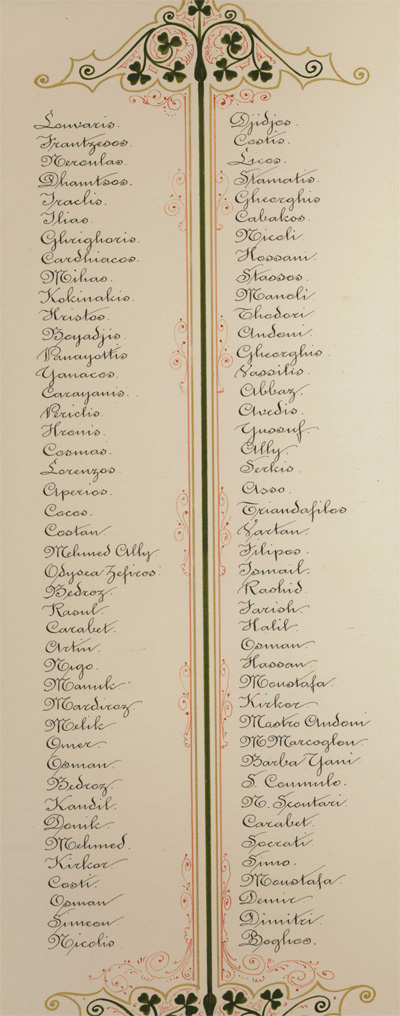 Louvaris.
Frantzesos.
Neroulas.
Dhamtsos.
Iraclis.
Ilias.
Ghrighoris.
Cardhiacos.
Mihao.
Kokinakis.
Hristos.
Boyadjis.
Panayottis
Yanacos.
Carayanis.
Periclis.
Hronis.
Cosmas.
Lorenzos.
Aperios.
Cocos.
Costan.
Mehmed Ally.
Odysea Zefiros.
Bedroz.
Rasul.
Carabet.
Artin.
Nigo.
Manuk.
Mardiroz
Melik.
Omer.
Osman.
Bedroz.
Kandil.
Donik.
Mehmed.
Kirkor.
Costi.
Osman
Simeon
Nicolis.
Djidjos.
Costis.
Licos.
Stamatis.
Gheorghis
Cabakos.
Nicoli.
Hossani.
Stassos.
Manoli
Thodori
Andoni.
Gheorghis.
Vassilis.
Abbaz.
Avedis.
Yussuf.
Ally.
Serkis.
Asso.
Triandafilos
Vartan.
Filipos.
Ismail.
Rashid.
Farish.
Halil.
Osman.
Hassan.
Moustafa.
Kirkor.
Mastro Andoni
M. Marcoglou.
Barba Yani.
S. Coumulo.
N. Scoutari.
Carabet.
Socrati.
Simo.
Moustafa.
Demir.
Dimitri.
Boghos.